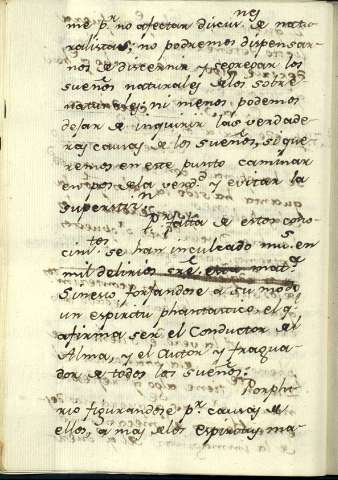 me pr. no afectar discursiones de natu-
ralistas; no podremos dispensar-
nos de discernir y segregar los
sueños naturales de los sobre
naturales; ni menos podemos
dejar de inquirir las verdade-
ras causas de los sueños, si que
remos en este punto caminar
en pos de la verd.d y evitar la
superstin.
Por falta de estos cono-
cim.tos se han inculcado mu.s en
mil delirios sre. esta mat.a
Sinesio forjandose a su modo
un espiritu phantastico, el q.
afirma ser el Conductor del
Alma, y el Autor y fragua-
dor de todos los sueños:
Porphi
rio figurandose pr. causas de
ellos, a mas de los espiritus ma-